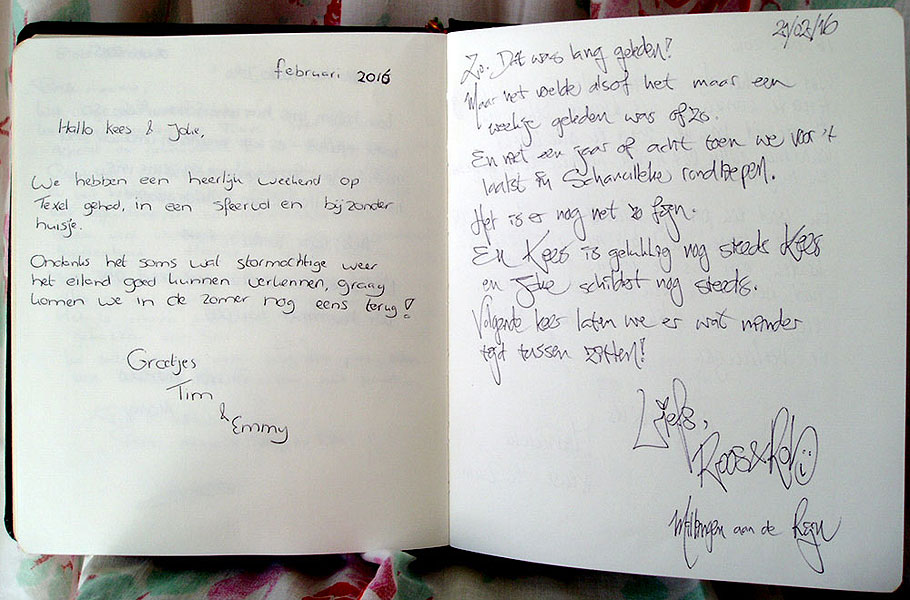 februari 2016
Hallo Kees & Joke,
We hebben een heerlijk weekend op
Texel gehad, in een sfeervol en bijzonder
huisje.
Ondanks het soms wat stormachtige weer
het eiland goed kunnen verkennen, graag
komen we in de zomer nog eens terug!
Groetjes
Tim
& Emmy
21/02/16
Zo. Dat was lang geleden!
Maar het voelde alsof het maar een
weekje geleden was ofzo.
En niet een jaar of acht toen we voor 't
laatst in Schanulleke rondliepen.
Het is er nog net zo fijn.
En Kees is gelukkig nog steeds Kees
en Joke schildert nog steeds.
Volgende keer laten we er wat minder
tijd tussen zitten!
Liefs,
Roos & Rob
Millingen aan de Rijn